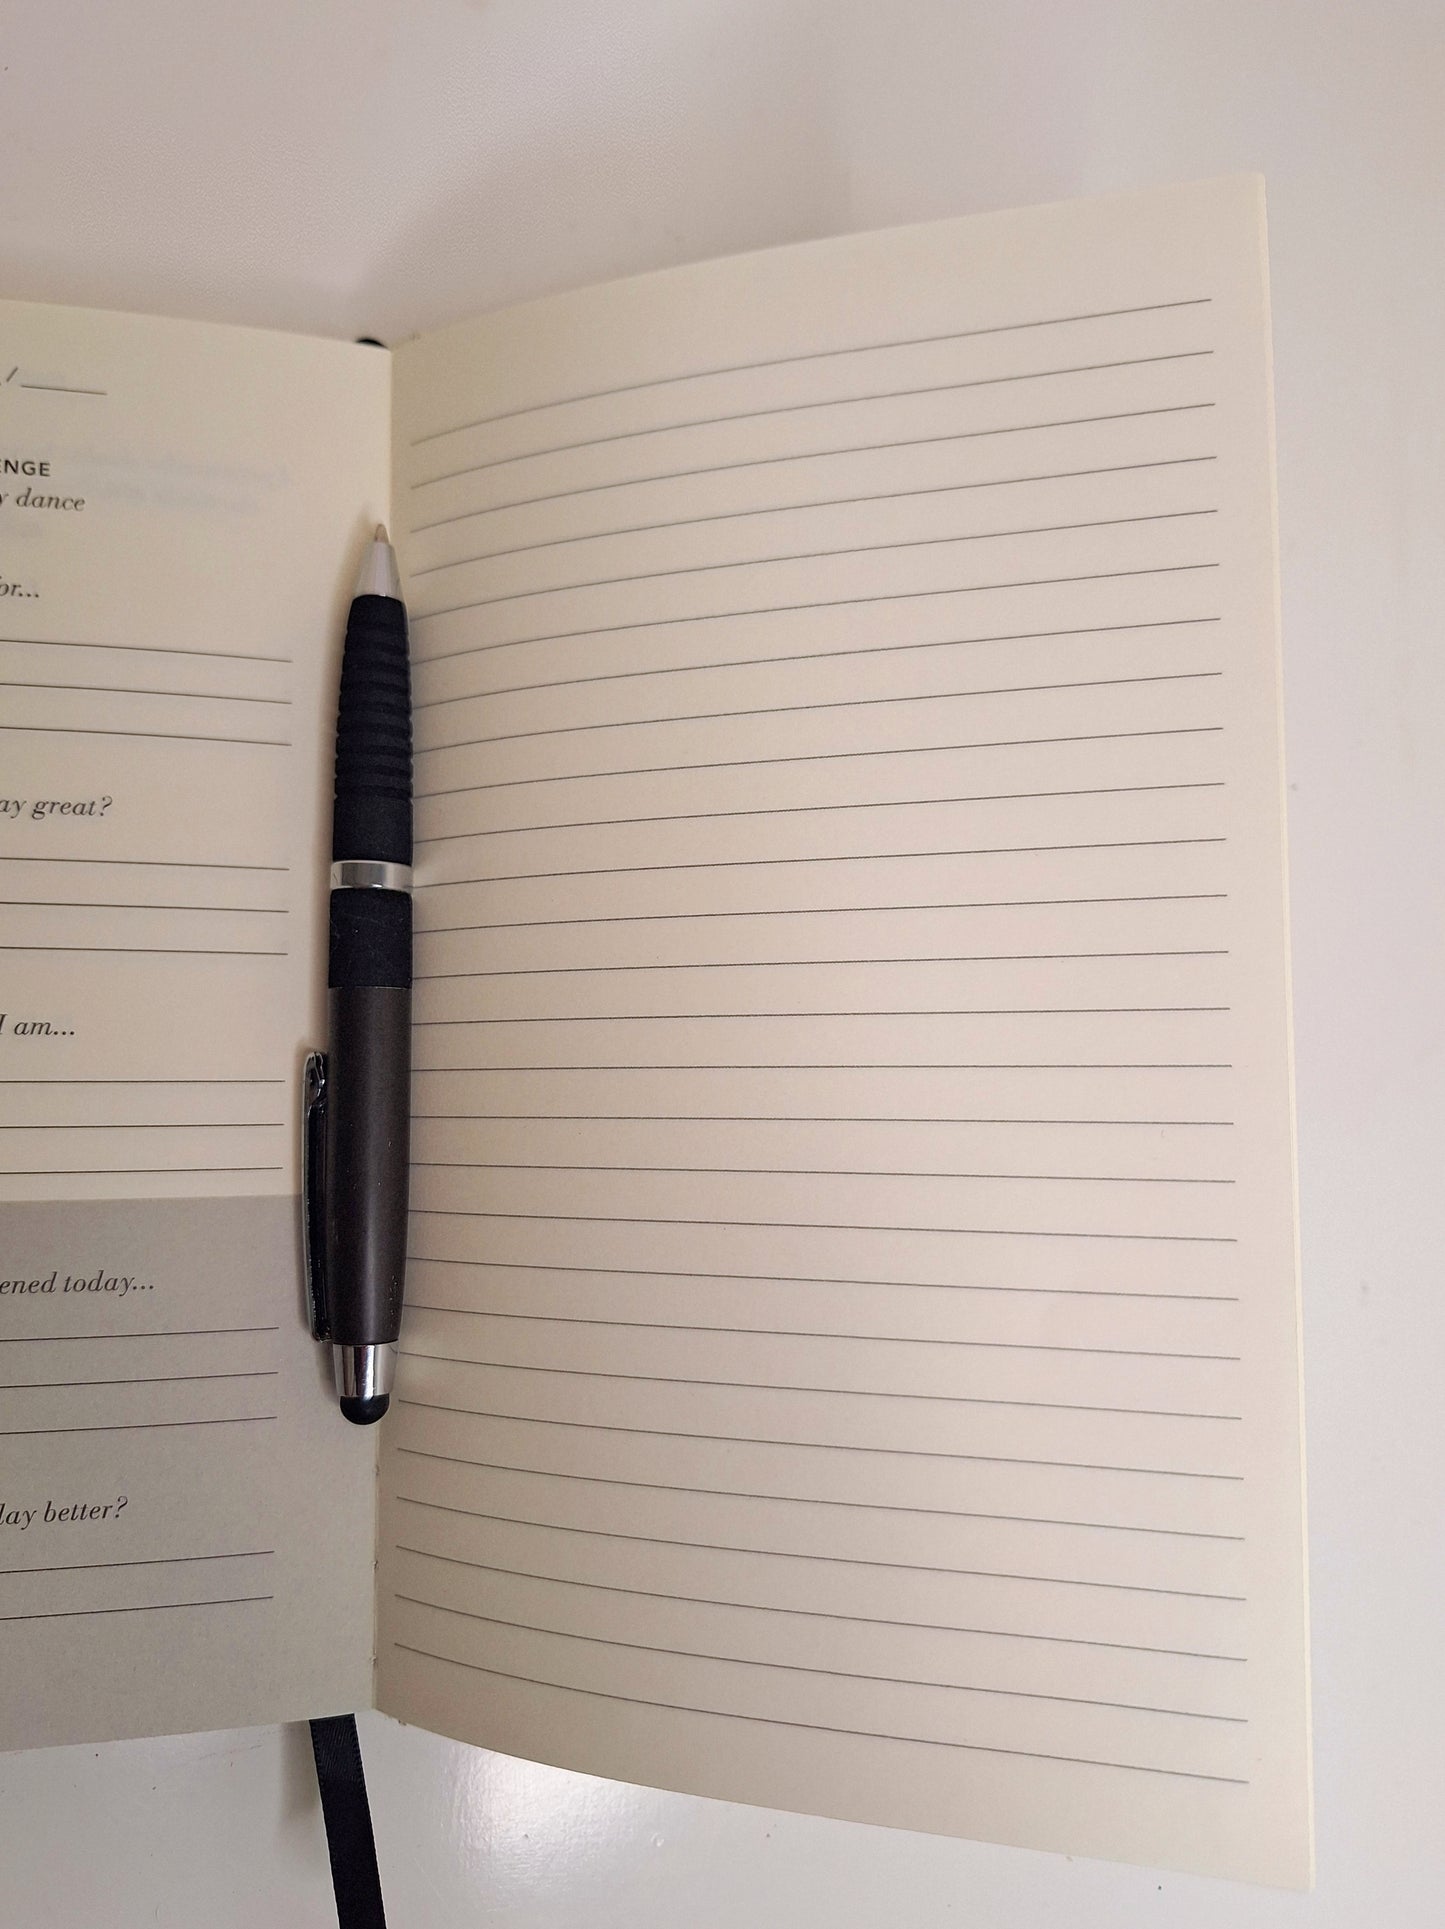 /
ENGE
dance
or...
ay great?
I am...
ened today...
lay better?